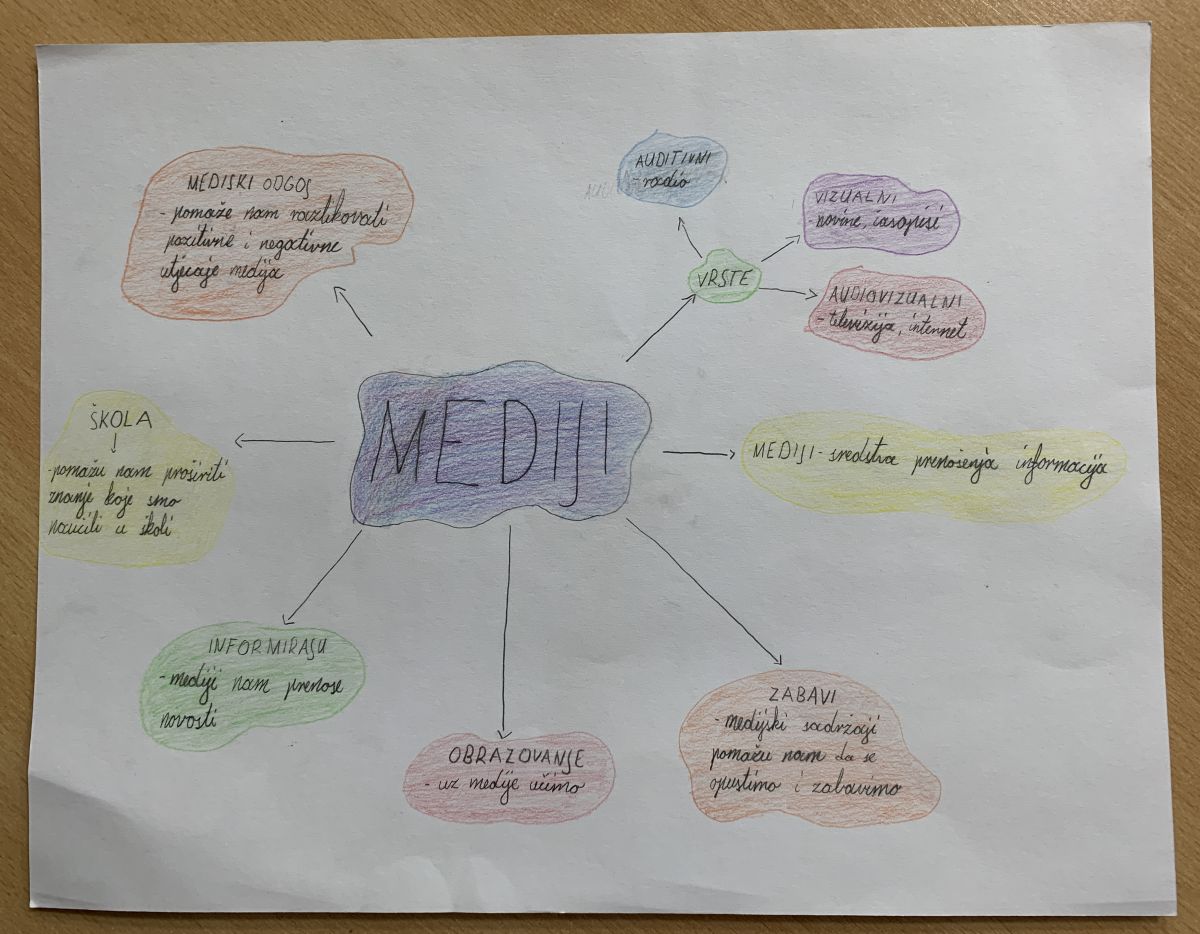 MEDIJI
MEDISKI ODGOJ
- pomaže nam razlikovati
pozitivne i negativne
utjecaje medija
AUDITIVNI
- radio
VIZUALNI
- novine, časopisi
VRSTE
AUDIOVIZUALNI
- televizija, internet
ŠKOLA
- pomažu nam proširiti
znanje koje smo
naučili u školi
MEDIJI - sredstva prenošenja informacija
INFORMIRAJU
- mediji nam prenose
novosti
OBRAZOVANJE
- uz medije učimo
ZABAVI
- medijski sadržaji
pomažu nam da se
opustimo i zabavimo